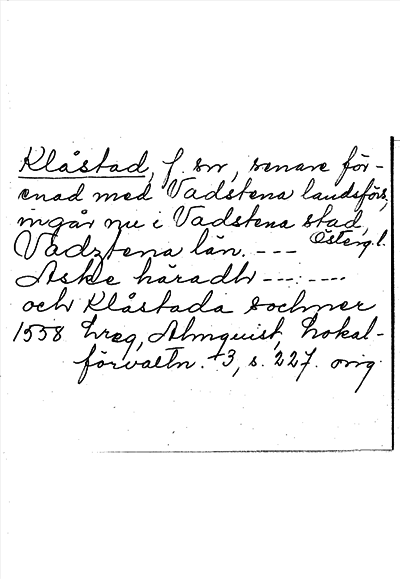 Klåstad, f. sn, senare för-
enad med Vadstena landsförs.,
ingår nu i Vadstena stad,
Österg. l.
Vadztena län. ---
Aske häradh --- . ----
och Klåstada sochner
1558 hreg, Almquist, Lokal-
förvaltn. 3, s. 227. orig.